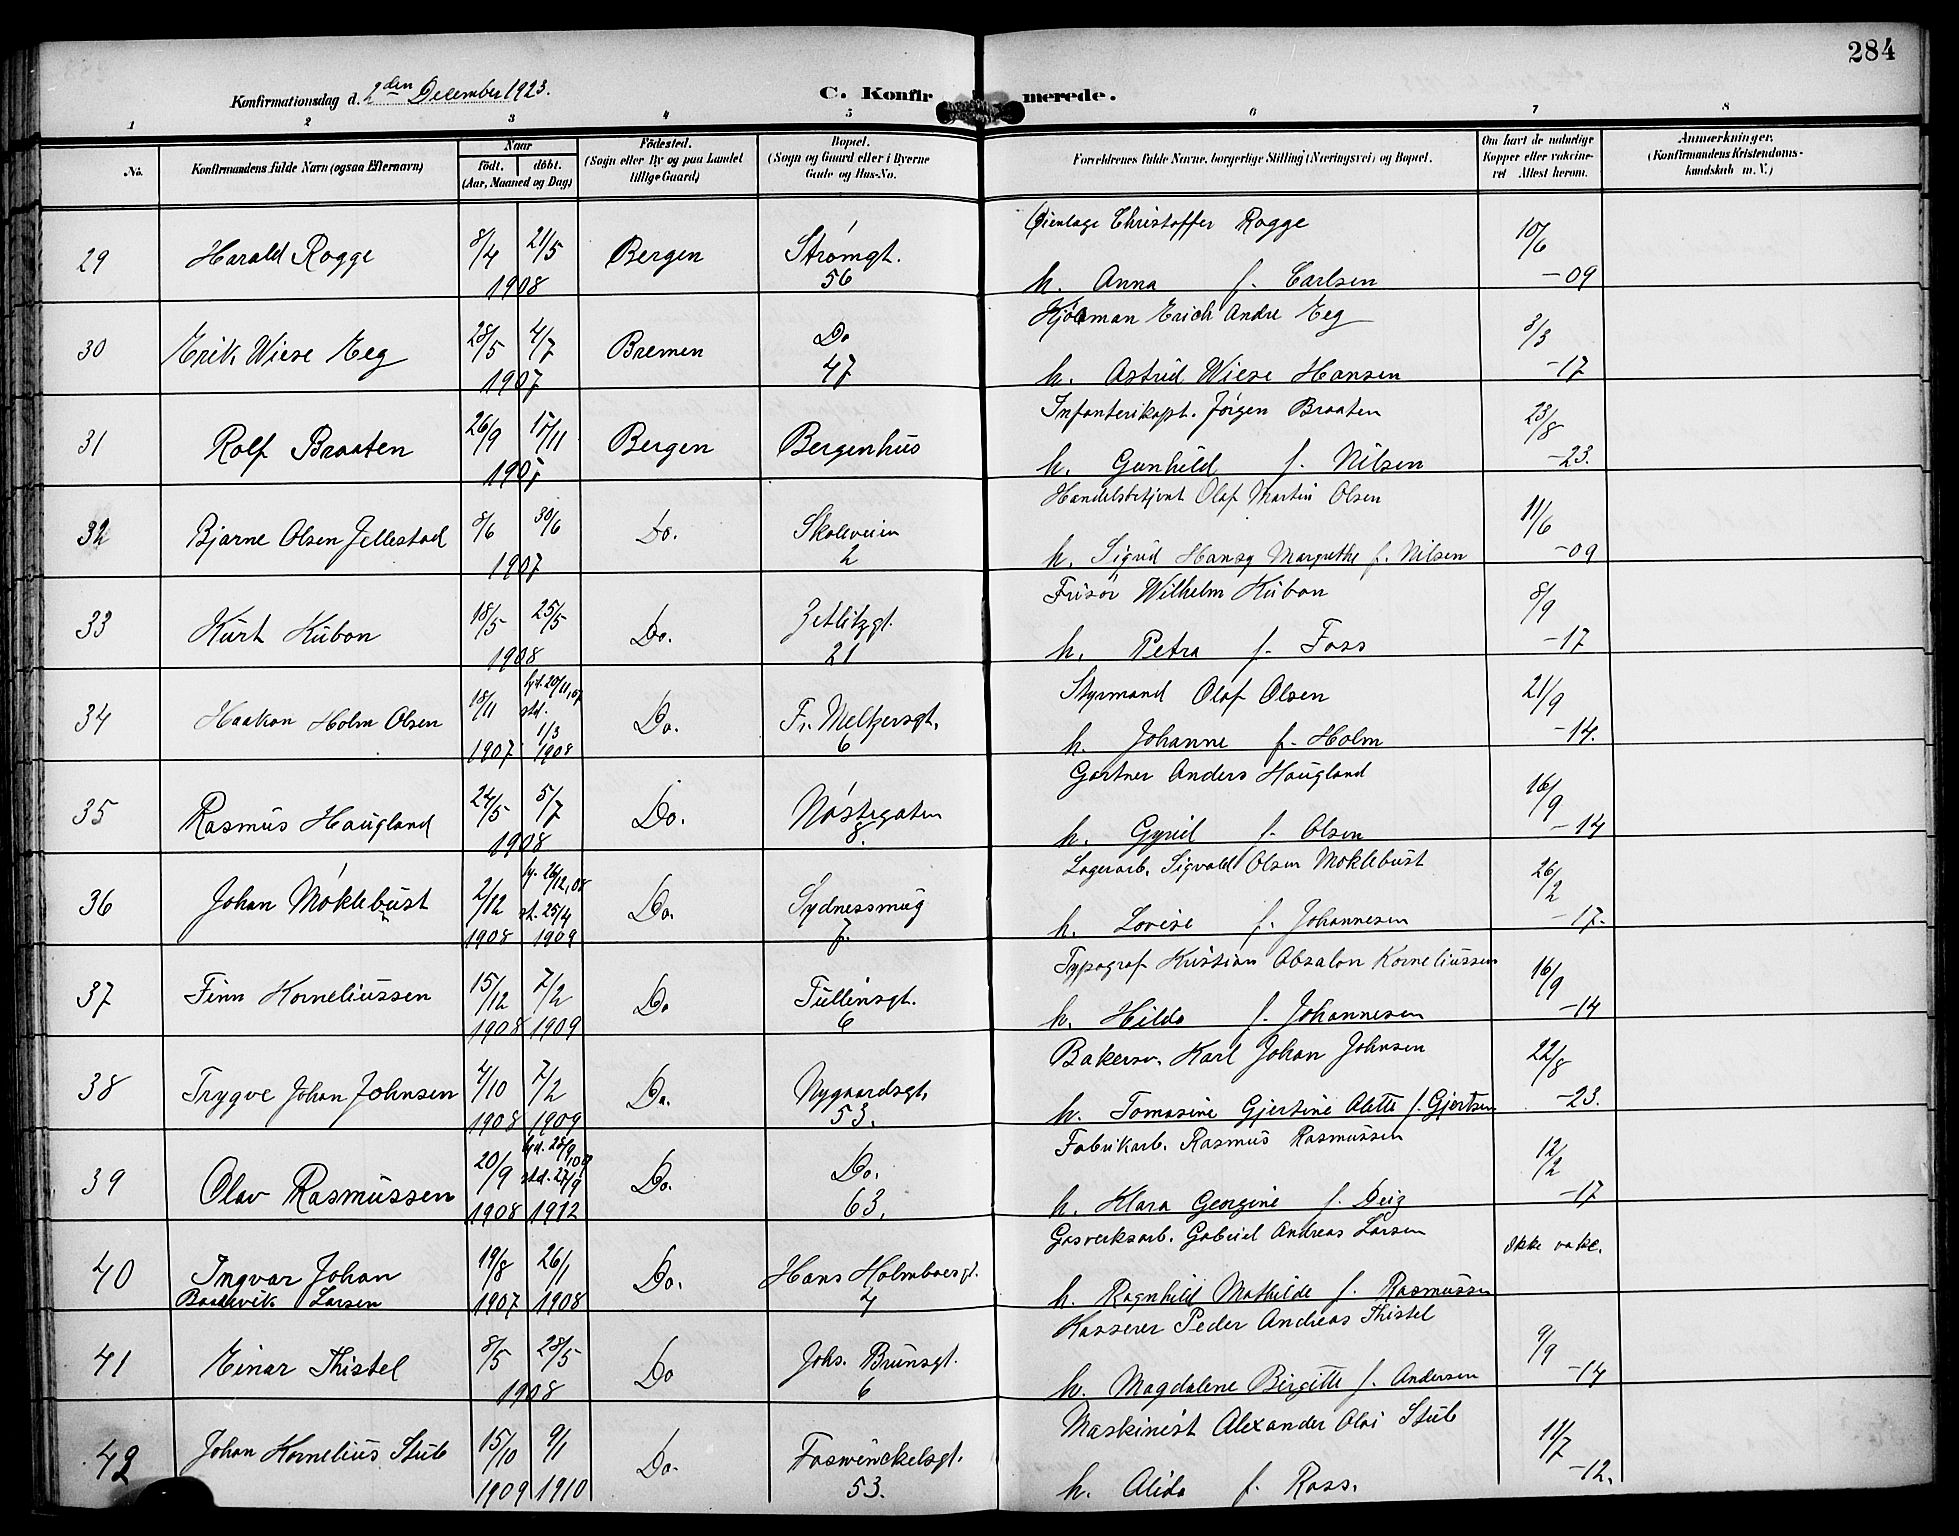 284
Konfirmationsdag d. 2den December 1923.
C. Konfirmerede.
1 2 3 4 5 6 7 8
No. Konfirmandens fulde Navn (ogsaa Efternavn) Naar født. døbt. (Aar, Maaned og Dag) Fødested. (Sogn eller By og paa Landet tillige Gaard) Bopæl. (Sogn og Gaard eller i Byerne Gade og Hus-No. Forældrenes fulde Navne, borgerlige Stilling (Næringsvei) og Bopæl. Om havt de naturlige Kopper eller vakcineret Attest herom. Anmærkninger. (Konfirmandens Kristendomskundskab m. V.)
29 Harald Rogge 8/4 21/5 1908 Bergen Strømgt. 56 Øienlæge Christoffer Rogge
h. Anna f. Carlsen 10/6 -09
30 Erik Wiese Eeg 28/5 4/7 1907 Bremen Do 47 Kjøbman Erich Andre Eeg
h. Astrid Wiese Hansen 3/3 -17
31 Rolf Braaten 26/9 Bergen Bergenhus Infanterikapt. Jørgen Braaten
h. Gunhild f. Nilsen 23/8 -23.
32 Bjarne Olsen Jellestad 8/6 30/6 1907 Do. Skoleveien 2 Handelsbetjent Olaf Martin Olsen
h. Sigrid Hansy Margrethe f. Nilsen 11/6 -09
33 Kurt Kubon 18/5 25/5 1908 Do. Zetlitzgt. 21 Frisør Wilhelm Kubon
h. Petra f. Foss 8/9 -17
34 Haakon Holm Olsen 18/11 1907 hjd. 20/11,07 std. 1/3 1908 Do. Fr. Meltzersgt. 6 Styrmand Olaf Olsen
h. Johanne f. Holm 21/9 -14.
35 Rasmus Haugland 24/5 5/7 1908 Do. Nøstegaten 8. Gartner Anders Haugland
h. Gyrid f. Olsen 16/9 -14
36 Johan Møklebust 2/12 1908 hj. 26/12,08 st. 25/4 1909 Do. Sydnessmug 7. Lagerarb. Sigvald Olsen Møklebust
h. Lovise f. Johannesen 26/2 -17.
37 Finn Korneliussen 15/12 1908 7/2 1909 Do Tullinsgt. 6 Typograf Kristian Absalon Korneliussen
h. Hilda f. Johannesen 16/9 -14
38 Trygve Johan Johnsen 4/10 1908 7/2 1909 Do. Nygaardsgt. 53. Bakersv. Karl Johan Johnsen
h. Tomasine Gjertine Alette f. Gjertsen 22/8 -23.
39 Olav Rasmussen 20/9 1908 hjd. 28/9,08 std. 27/9 1912 Do. Do. 63. Fabrikarb. Rasmus Rasmussen
h. Klara Georgine f. Deig 12/2 -17
40 Ingvar Johan Baadsvik Larsen 19/8 1907 26/1 1908 Do. Hans Holmboesgt. 4 Gasverksarb. Gabriel Andreas Larsen
h. Ragnhild Mathilde f. Rasmussen Ikke vakc.
41 Einar Thistel 8/5 28/5 1908 Do Johs. Brunsgt. 6 Kasserer Peder Andreas Thistel
h. Magdalene Birgitte f. Andersen 9/9 -14
42 Johan Kornelius Stub 15/10 1909 9/1 1910 Do. Foswinckelsgt. 53. Maskinist Alexander Olai Stub
h. Alida f. Ross. 11/7 -12.